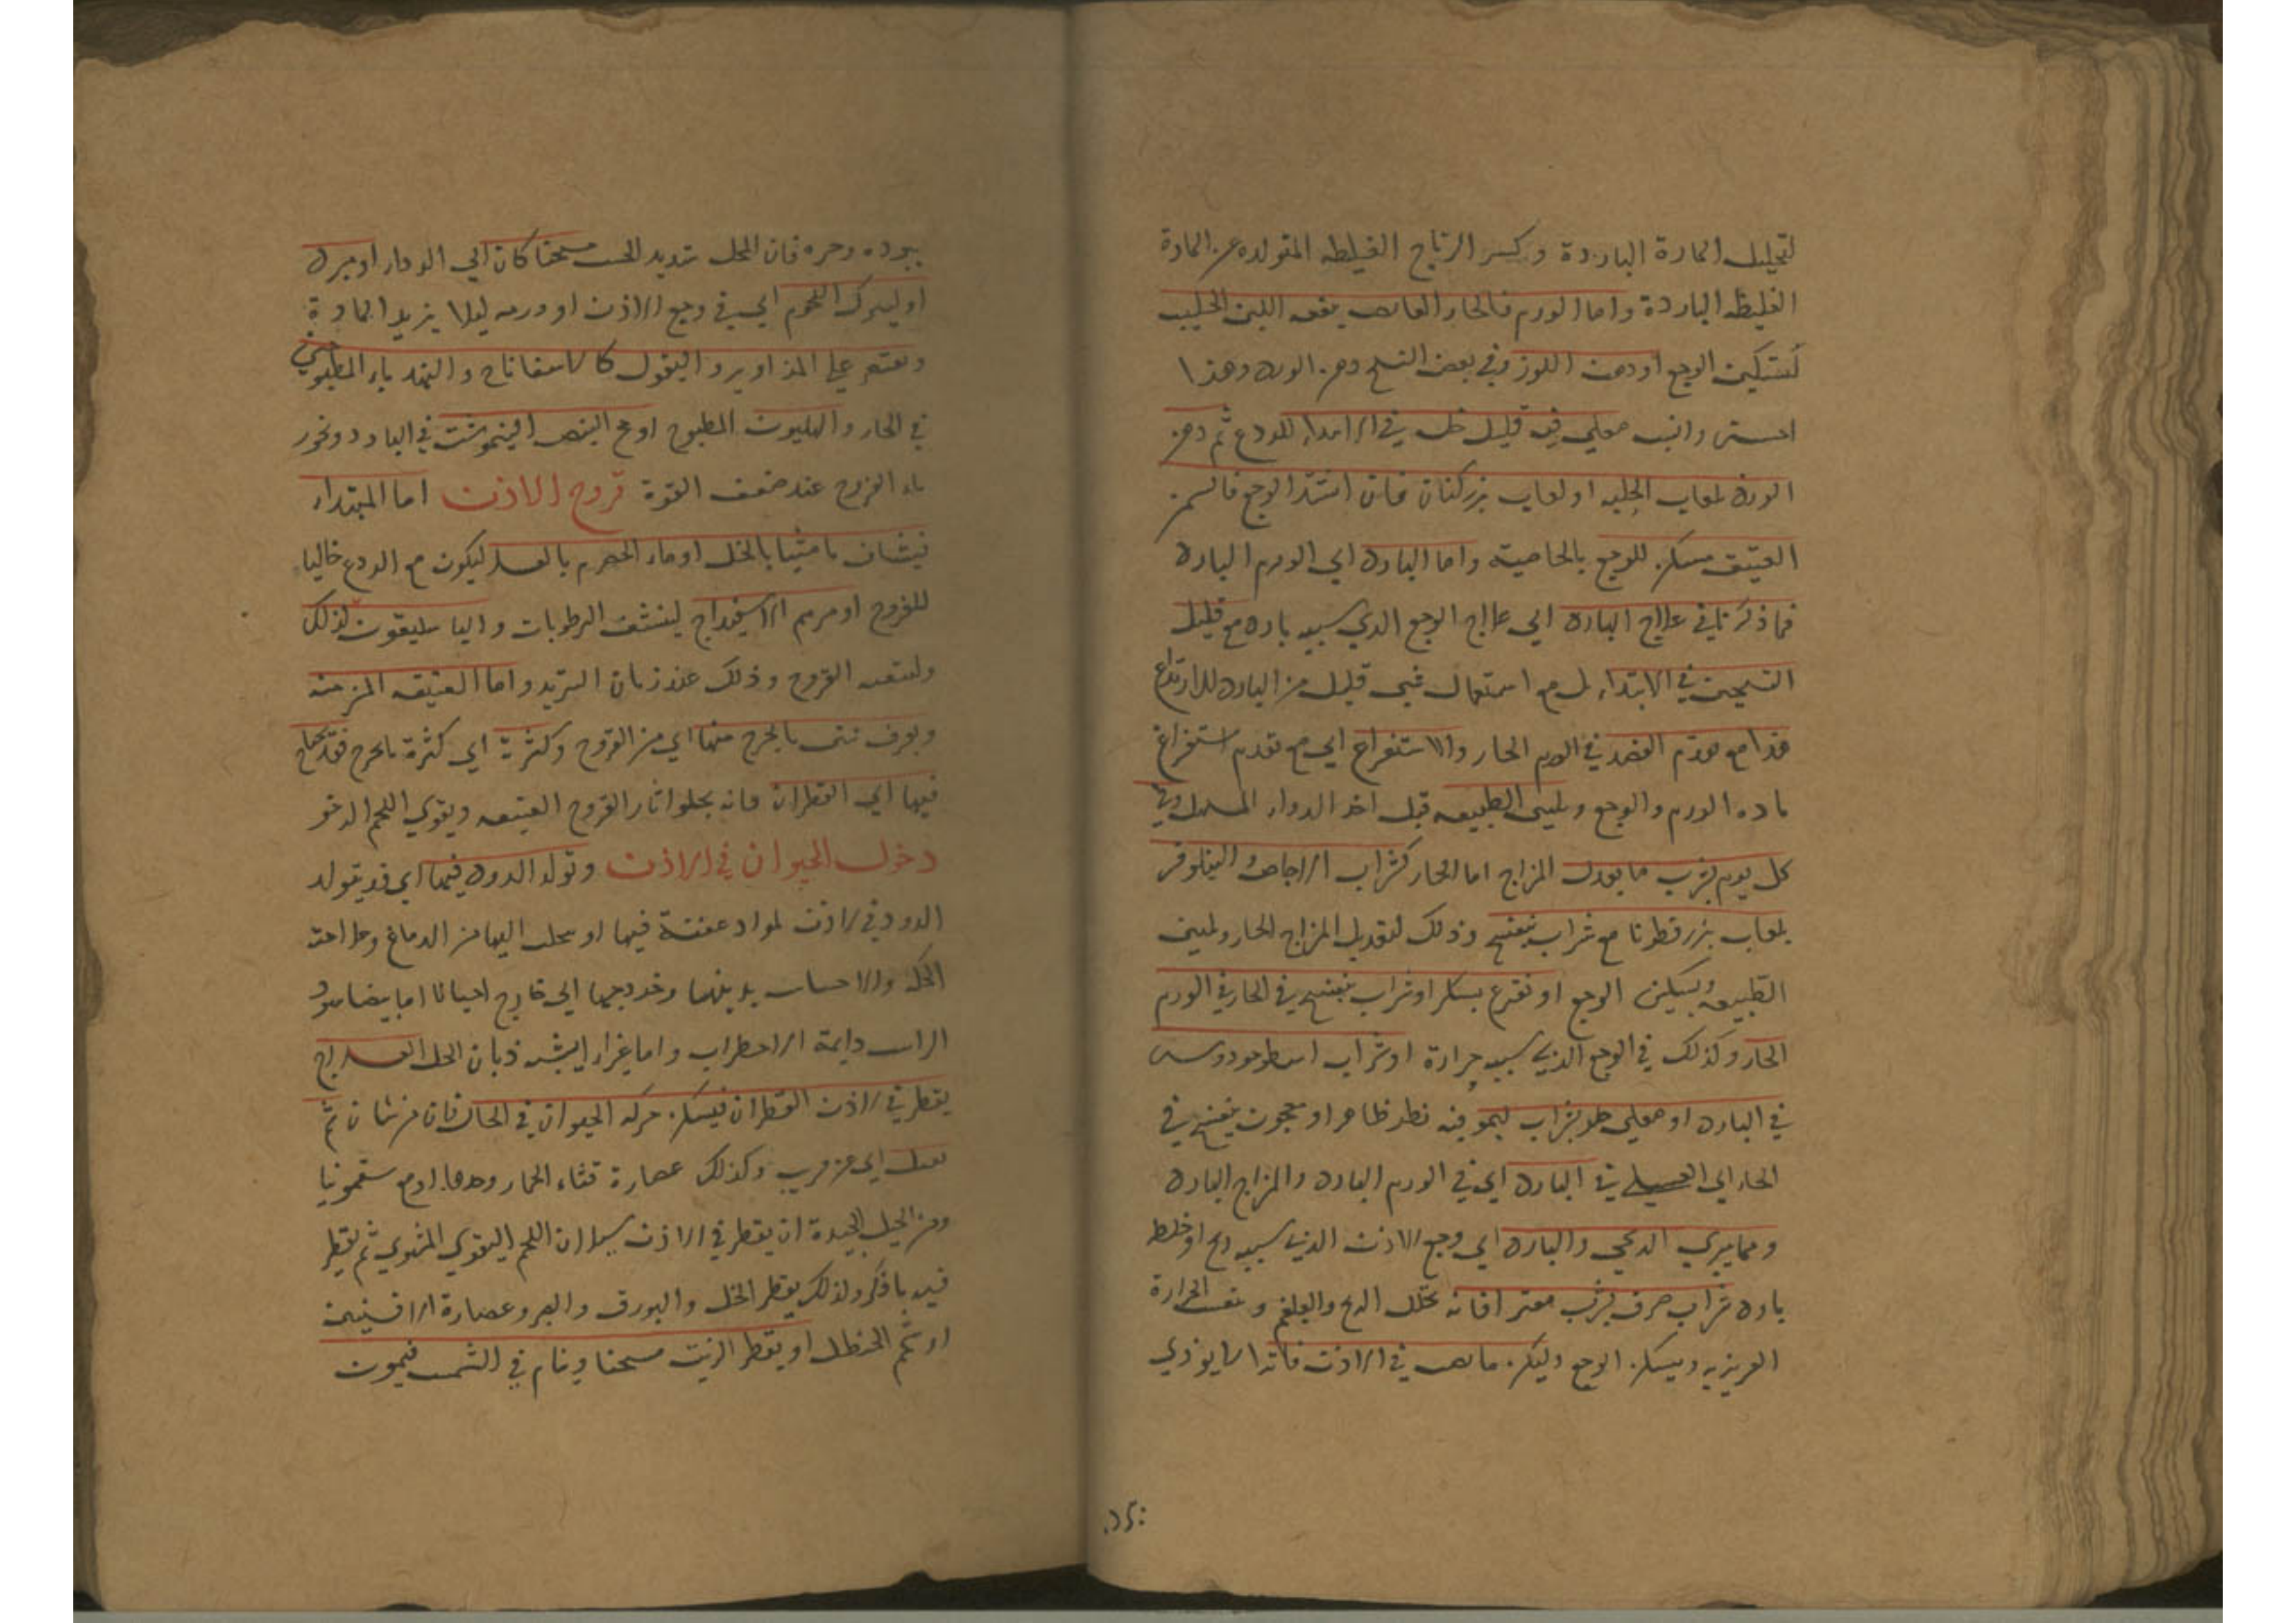 لتحليل المادة الباردة وكسر الرياح الغليظه المتولده عن المادة
الغليظه الباردة واما الورم فالحار اللبن الحليب
لتسكين الوجع او دهن اللوز وفي بعض النسخ دهن الورد وهذا
مغلي فيه قليل خل في الابتداء للردع ثم دهن
الورد بلعاب الحلبه او لعاب بزركتان فان اشتد الوجع فالسمن
العتيق مسكن للوجع بالخاصيه واما البارد اي الورم البارد
فما ذكرنا في علاج البارد اي علاج الوجع الذي سببه بارد مع قليل
التسخين في الابتداء بل مع استعمال شي قليل من البارد للارتداع
هذا مع تقدم الفصد في الورم الحار والاستفراغ اي مع تقدم استفراغ
ماده الورم والوجع وتليين الطبيعه قبل اخذ الدواء المسهل وفي
كل يوم يشرب ما يعدل المزاج اما الحار كشراب الاجاص والنيلوفر
بلعاب بزرقطونا مع شراب بنفسج وذلك لتعديل المزاج الحار وتليين
الطبيعه وتسكين الوجع او نقوع بسكر او شراب بنفسج في الحار في الورم
الحار وكذلك في الوجع الذي سببه حرارة او شراب اسطوخودوس
في البارد او مغلي حلو بشراب ليمو فيه نظر ظاهر او معجون بنفسج في
الحار اي العسلي في البارد اي في الورم البارد والمزاج البارد
ومما يبري الريحي والبارد اي وجع الاذن الذي سببه ريح او خلط
بارد شراب صرف يشرب فانه تحلل الريح والبلغم الحرارة
الغريزيه ويسكن الوجع وليكن في الاذن فاترا لئلا يوذي
ببرده وحره فان المحل شديد الحس مسخنا كان اي الدواء او مبرد
او ليترك اللحوم اي في وجع الاذن او ورمه ليلا يزيد المادة
ويقتصر علي المزاوير والبقول كالاسفاناخ والهندباء المطبوخين
في الحار والهليون المطبوخ او مح البيض النيمرشت في البارد ونخور
ماء الفروج عند ضعف القوة قروح الاذن اما المبتداء
فشياف ماميثا بالخل او ماء الحصرم بالعسل ليكون مع الردع جاليا
للقروح او مرهم الاسفيداج لينشف الرطوبات والباسليقون لذلك
القروح وذلك عند زمان التزيد واما العتيقه المزمنه
ويعرف بنتن ما يخرج منها اي من القروح وكثرته اي كثرة ما يخرج فقد يحتاج
فيها اي القطران فانه يجلوا اثار القروح العتيقه ويقوي اللحم الرخو
دخول الحيوان في الاذن وتولد الدود فيها اي قد يتولد
الدود في الاذن لمواد عفنة فيها او اليها من الدماغ وعلامته
الحكه والاحساس بدبيبهما وخروجهما الي خارج احيانا اما بيضا سود
الراس دايمة الاضطراب واما غزار يشبه ذبان الخل العلاج
يقطر في الاذن القطران فيسكن حركه الحيوان في الحال فان من شانه ثم
يقتل اي عن قريب وكذلك عصارة قثاء الحمار وحدها او مع سقمونيا
ومن الحيل الجيدة ان يقطر في الاذن اللحم البقري المشوي ثم يقطر
فيه ما ذكر ولذلك يقطر الخل والبورق والصبر وعصارة الافسنتين
او شحم الحنظل او يقطر الزيت مسخنا وينام في الشمس فيموت